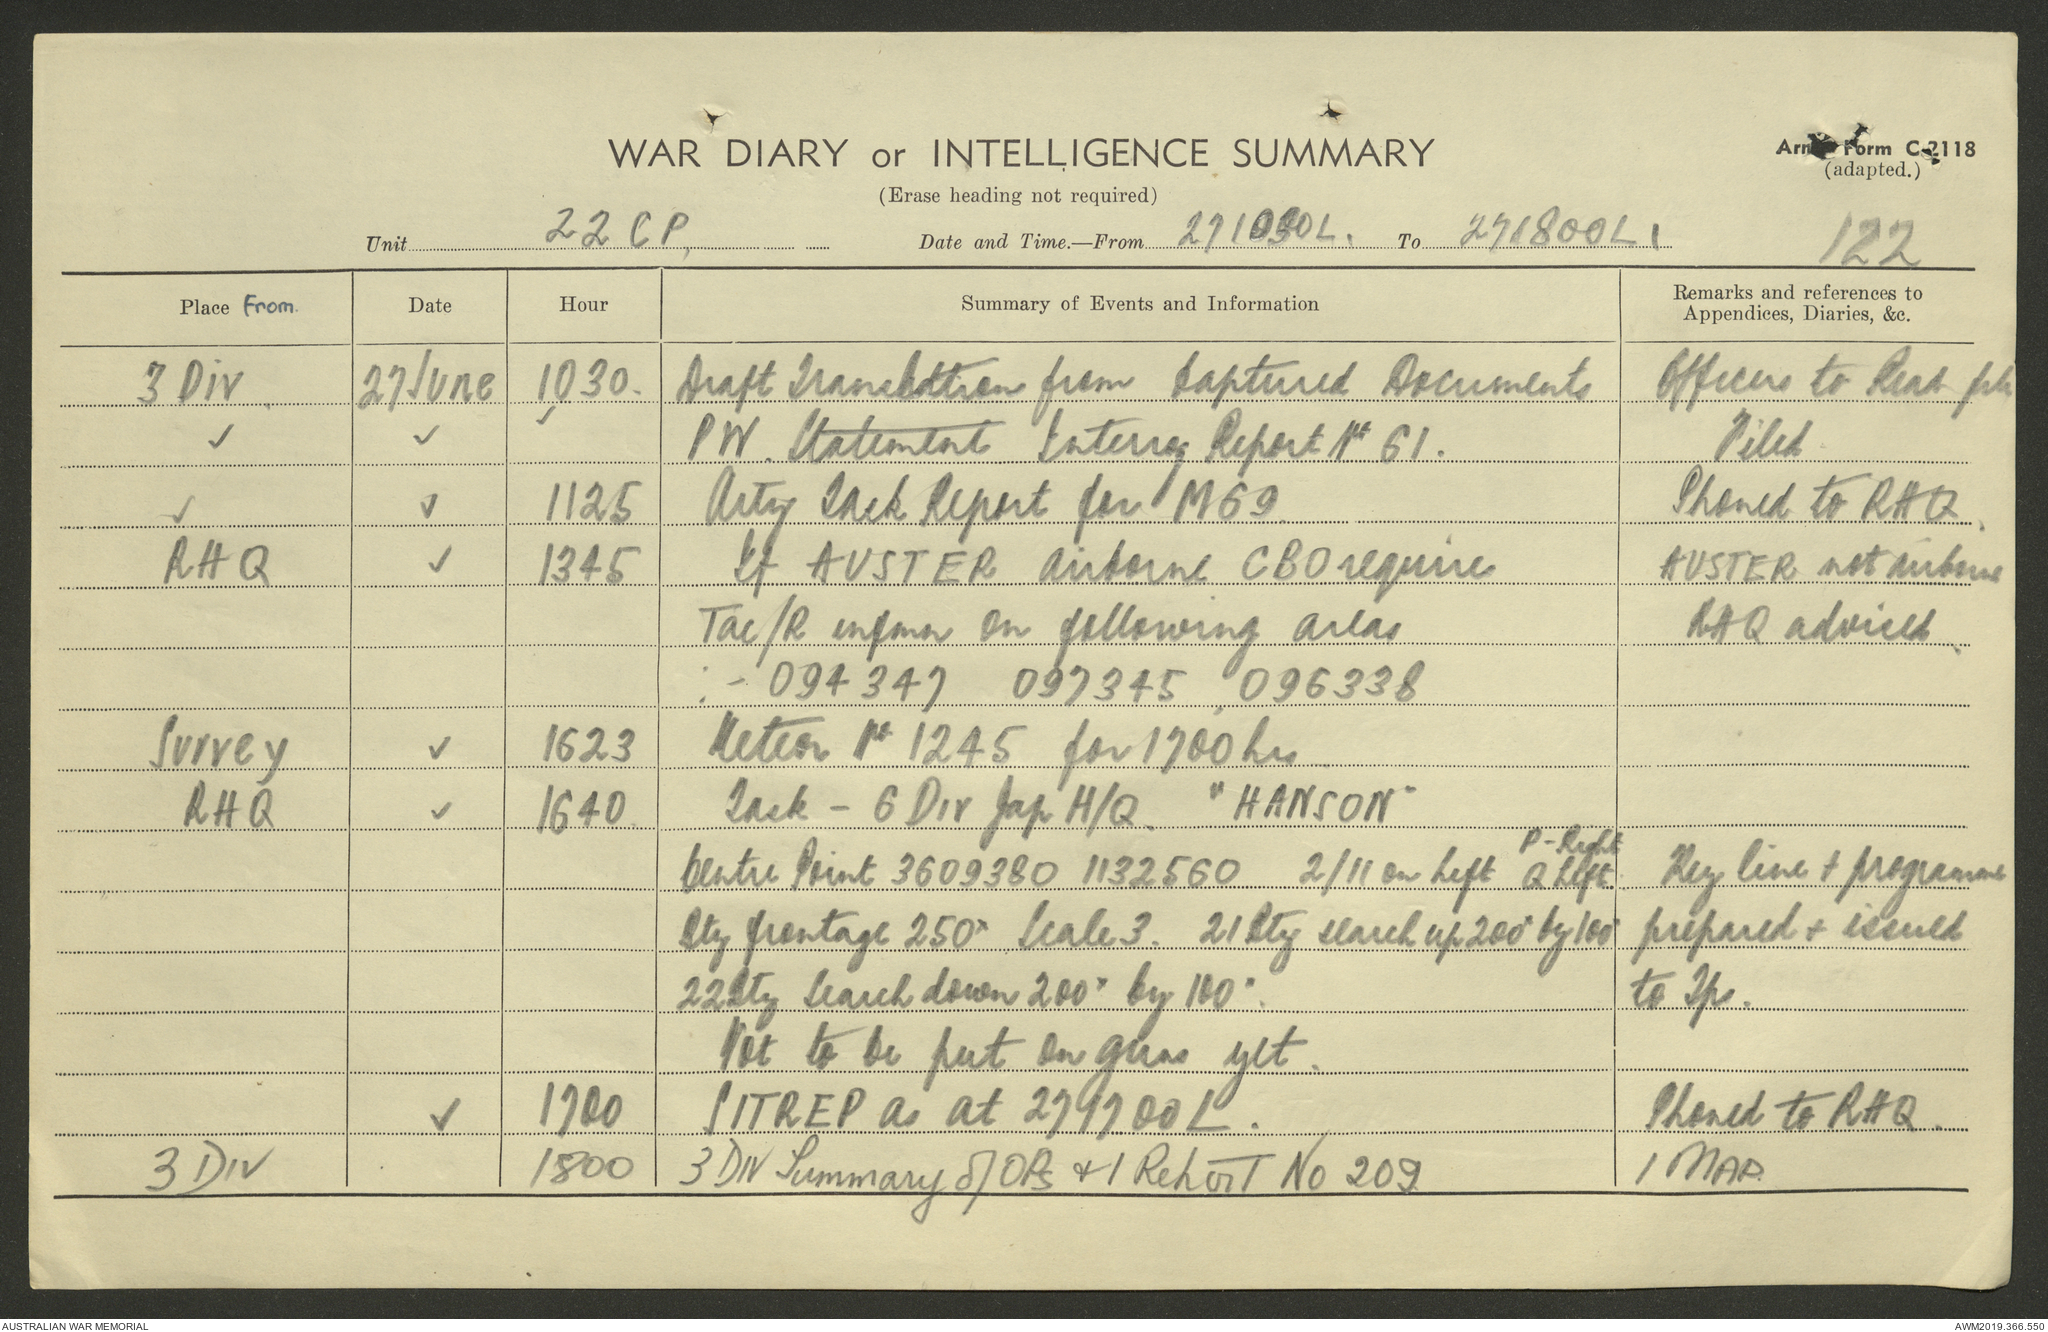 WAR DIARY or INTELLIGENCE SUMMARY
Army Form C-2118
(adapted.)
(Erase heading not required)
Unit 22 CP. Date and Time.—From 271030L. To 271800L. 122
Place From. Date Hour Summary of Events and Information Remarks and references to
Appendices, Diaries, &c.
3 Div 27 June 1030. Draft Translation from Captured Documents Officers to Read pls
✓ ✓ PW. Statement Interrog Report No 61. Filed
✓ ✓ 1125 Arty Task Report for M69 Phoned to RHQ.
RHQ ✓ 1345 If AUSTER airborne CBO require AUSTER not airborne
Tac/R infmn on following areas RHQ advised.
:- 094347 097345, 096338
Survey ✓ 1623 Meteor No 1245 for 1700 hrs
RHQ ✓ 1640 Task - 6 Div Jap H/Q. "HANSON"
P-Right
Centre Point 3609380 1132560 2/11 on Left Q Left. Key line + programme
Bty frontage 250x Scale 3. 21 Bty search up 200x by 100x prepared + issued
22 Bty Search down 200x by 100x. to Tps.
Not to be put on guns yet.
✓ 1700 SITREP as at 271700L. Phoned to RHQ.
3 DIV 1800 3 DIV Summary of OPs & I Report No 209 1 MAP.
AUSTRALIAN WAR MEMORIAL
AWM2019.366.550